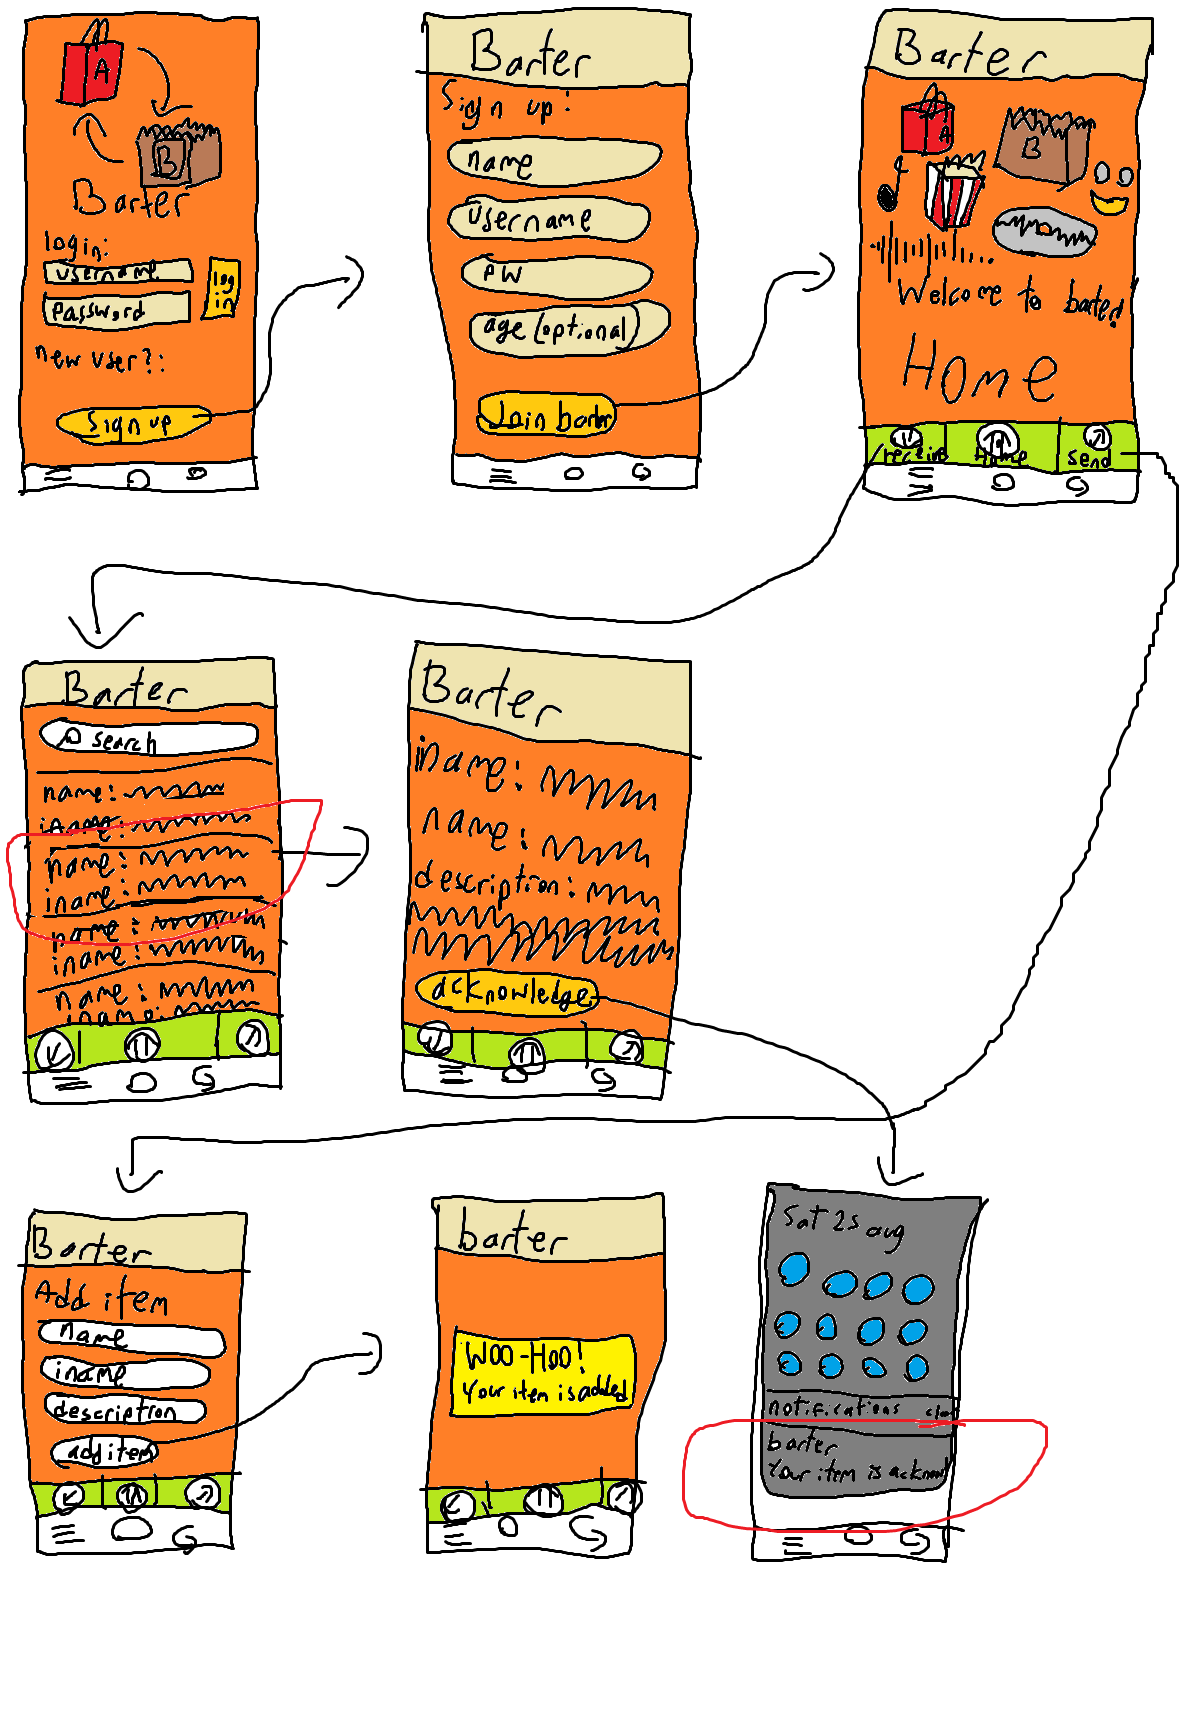 A
B
Barter
login:
username
password
log
in
new user?:
Sign up
Barter
Sign up:
name
username
PW
age (optional)
Join barter
Barter
A
B
Welcome to barter!
Home
receive
Home
send
Barter
search
name:
iname:
name:
iname:
name:
iname:
name:
iname:
Barter
iname:
name:
description:
acknowledge
Barter
Add item
name
iname
description
add item
barter
Woo-Hoo!
Your item is added
Sat 25 aug
notifications
barter
Your item is acknowl